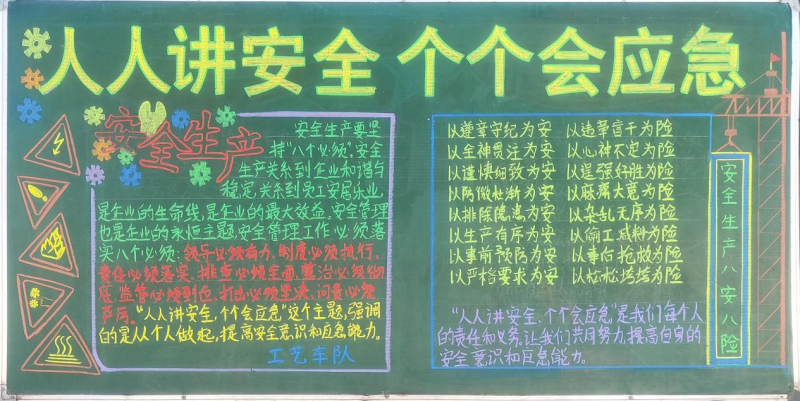 人人讲安全 个个会应急
安全生产
安全生产要坚
持"八个必须",安全
生产关系到企业和谐与
稳定,关系到员工安居乐业,
是企业的生命线,是企业的最大效益,安全管理
也是企业的永恒主题,安全管理工作必须落
实八个必须:领导必须有力,制度必须执行、
责任必须落实,排查必须全面,整治必须彻
底,监管必须到位,打击必须坚决,问责必须
严厉。"人人讲安全,个个会应急"这个主题,强调
的是从个人做起,提高安全意识和应急能力。
工艺车队
以遵章守纪为安 以违章盲干为险
以全神贯注为安 以心神不定为险
以谨慎细致为安 以逞强好胜为险
以防微杜渐为安 以麻痹大意为险
以排除隐患为安 以杂乱无序为险
以生产有序为安 以偷工减料为险
以事前预防为安 以事后抢救为险
以严格要求为安 以松松垮垮为险
"人人讲安全,个个会应急"是我们每个人
的责任和义务。让我们共同努力,提高自身的
安全意识和应急能力。
安全生产八安八险